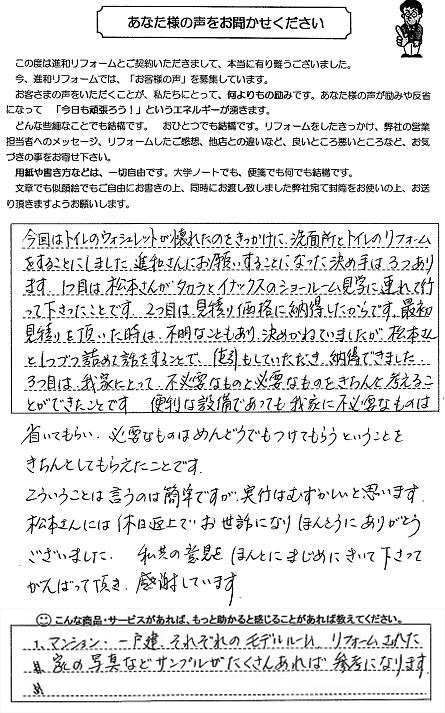 あなた様の声をお聞かせください
この度は進和リフォームとご契約いただきまして、本当に有り難うございました。
今、進和リフォームでは、「お客様の声」を募集しています。
お客さまの声をいただくことが、私たちにとって、何よりもの励みです。あなた様の声が励みや反省
になって　「今日も頑張ろう！」というエネルギーが湧きます。
どんな些細なことでも結構です。　おひとつでも結構です。リフォームをしたきっかけ、弊社の営業
担当者へのメッセージ、リフォームしたご感想、他店との違いなど、良いところ悪いところなど、お気
づきの事をお寄せ下さい。
用紙や書き方などは、一切自由です。大学ノートでも、便箋でも何でも結構です。
文章でも似顔絵でもご自由にお書きの上、同時にお渡し致しました弊社宛て封筒をお使いの上、お送
り頂きますようお願いします。
今回はトイレのウォシュレットが壊れたのをきっかけに、洗面所とトイレのリフォーム
をすることにしました。進和さんにお願いすることになった決め手は3つあり
ます。1つ目は松本さんがタカラとイナックスのショールーム見学に連れて行
って下さったことです。2つ目は見積り価格に納得したからです。最初
見積りを頂いた時は、不明なこともあり、決めかねていましたが、松本さん
と1つづつ詰めて話をすることで、値引もしていただき、納得できました。
3つ目は、我家にとって、不必要なものと必要なものをきちんと考えるこ
とができたことです　便利な設備であっても我家に不必要なものは
省いてもらい、必要なものはめんどうでもつけてもらうということを
きちんとしてもらえたことです。
こういうことは言うのは簡単ですが、実行はむずかしいと思います。
松本さんには休日返上でお世話になりほんとうにありがとう
ございました。　私共の意見をほんとにまじめにきいて下さって
がんばって頂き、感謝しています。
こんな商品・サービスがあれば、もっと助かると感じることがあれば教えてください。
1、マンション・一戸建、それぞれのモデルルーム、リフォームされた
家の写真などサンプルがたくさんあれば参考になります。